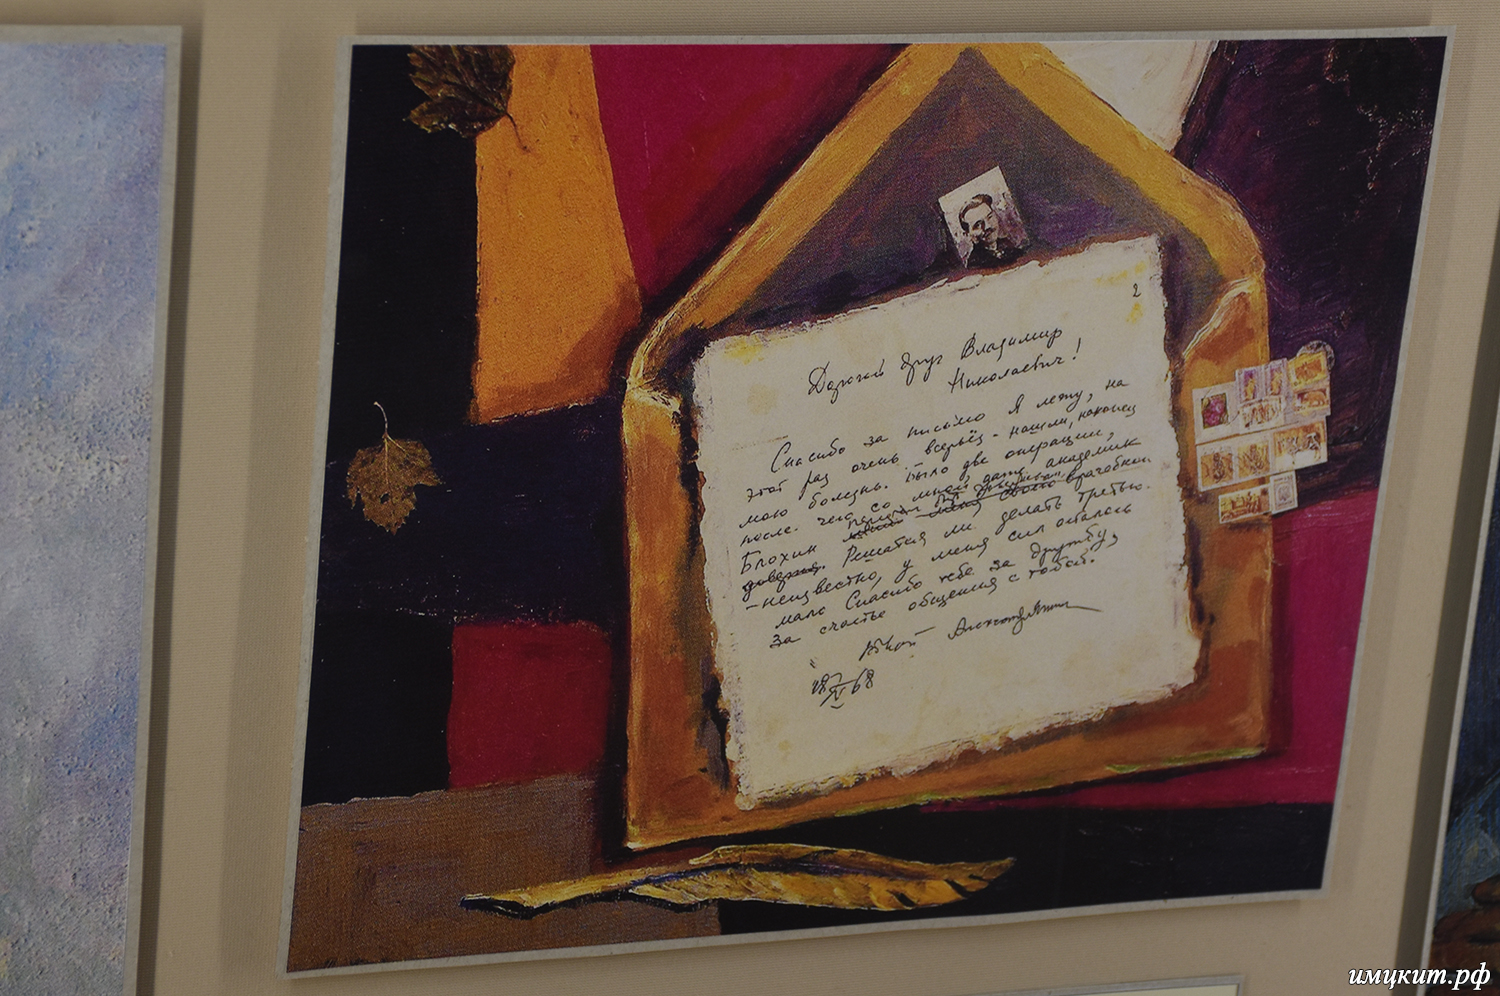 2
Дорогой друг Владимир
Николаевич!
Спасибо за письмо Я лежу, на
этот раз очень всерьёз - нашли, наконец
мою болезнь. Было две операции,
после чего со мной даже академик
Блохин
врачебной
доверия. Решатся ли делать третью.
- неизвестно, у меня сил осталось
мало Спасибо тебе за дружбу,
за счастье общения с тобой.
Твой Александр Яшин
68
имцкит.рф